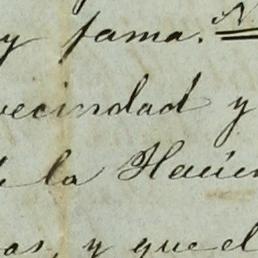 y fama. N
vecindad y
la Hacien
as, y que el